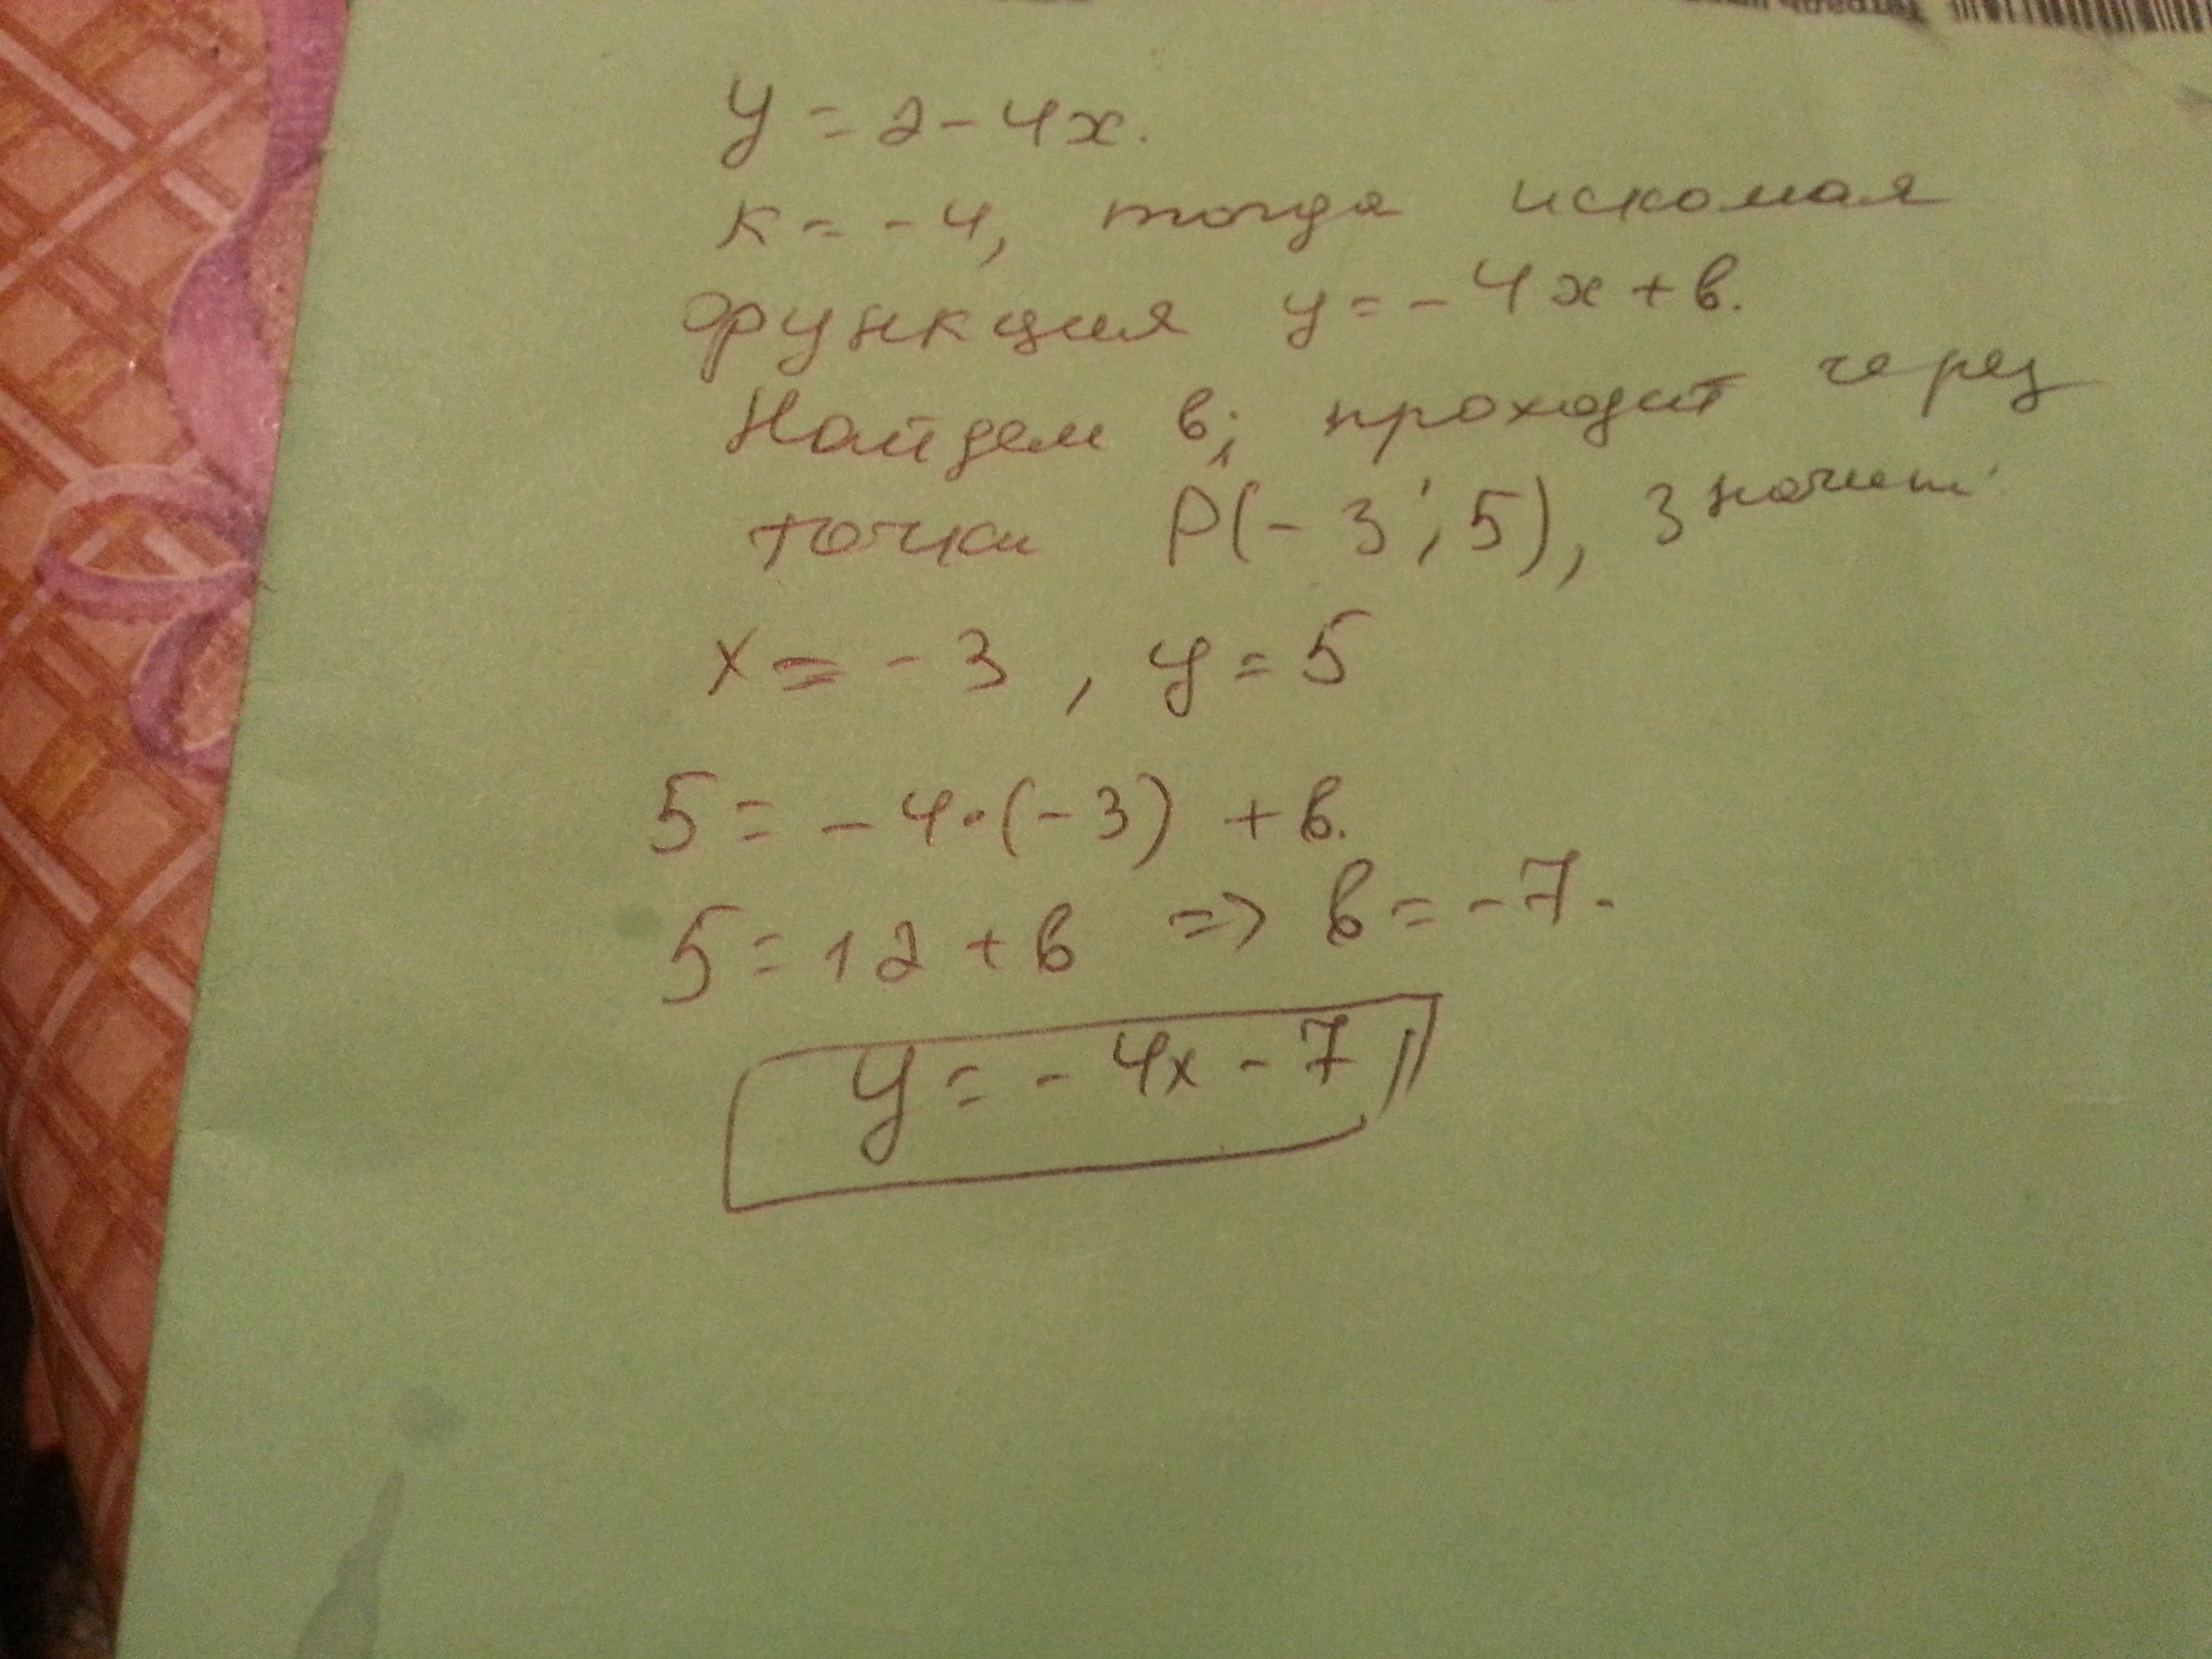 y = 2 - 4x.
к = -4, тогда искомая
функция y = -4x + в.
Найдем в; проходит через
точки P(-3; 5), значит
x = -3, y = 5
5 = -4·(-3) + в.
5 = 12 + в => в = -7.
y = -4x - 7